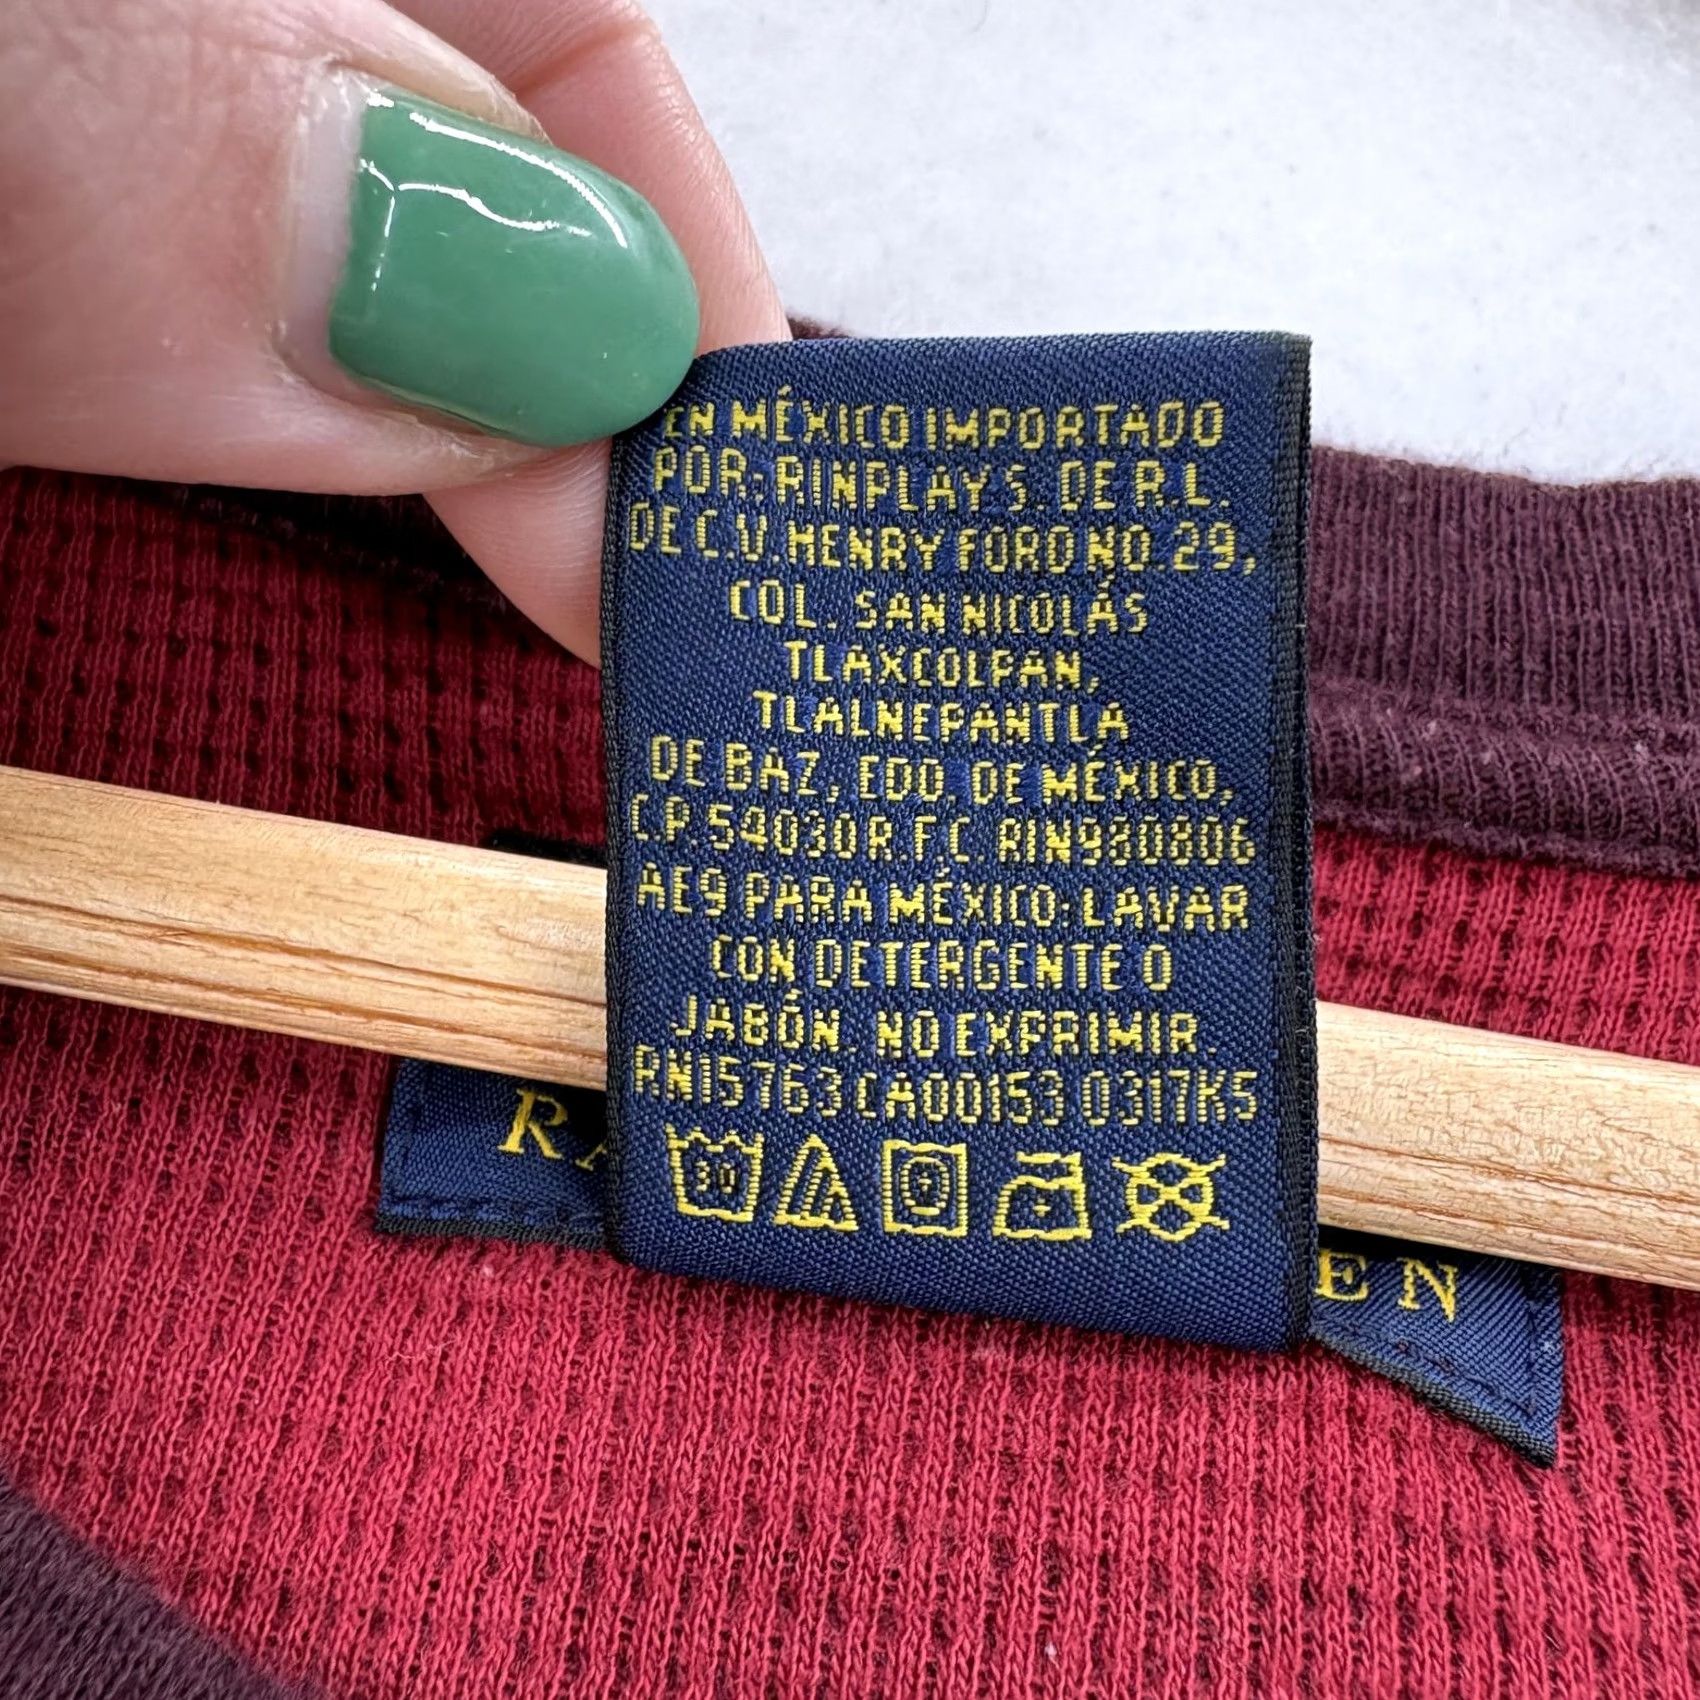 EN MÉXICO IMPORTADO
POR: RINPLAY S. DE R.L.
DE C.V. HENRY FORD NO. 29,
COL. SAN NICOLÁS
TLAXCOLPAN,
TLALNEPANTLA
DE BAZ, EDO. DE MÉXICO,
C.P. 54030 R.F.C. RIN980806
AE9 PARA MÉXICO: LAVAR
CON DETERGENTE O
JABÓN. NO EXPRIMIR.
RN15763 CA00153 0317KS
30
RA
EN